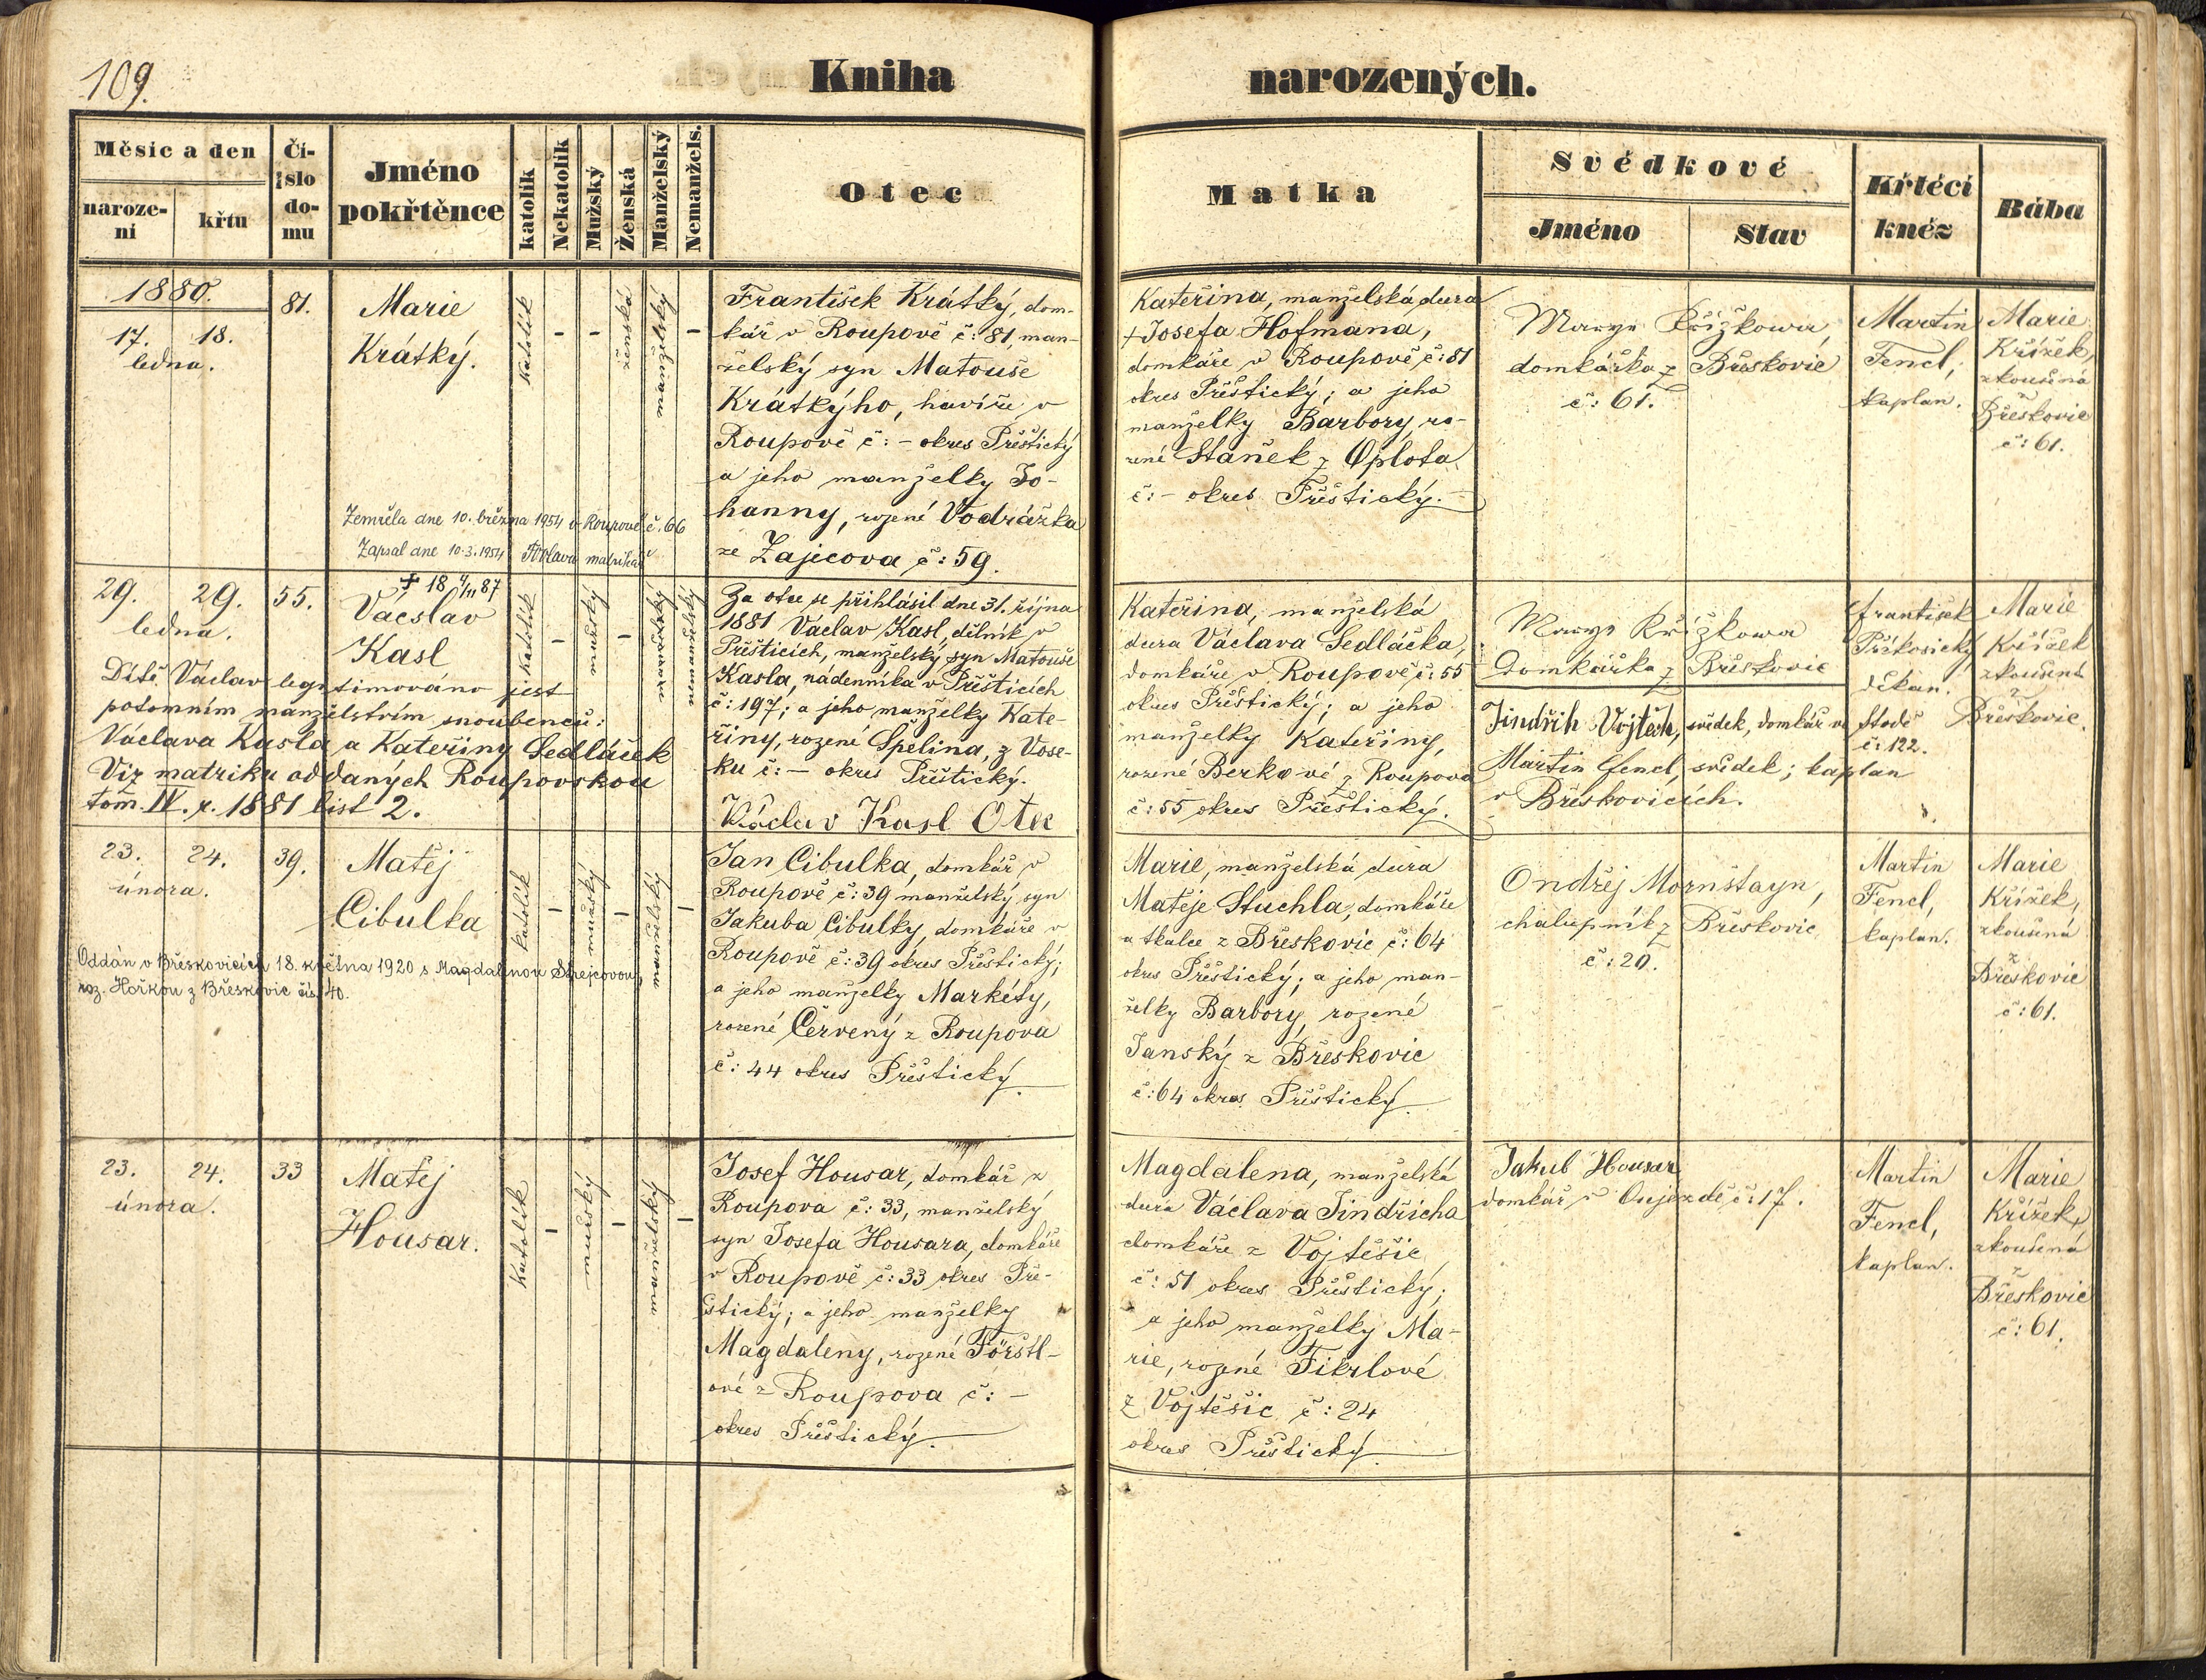 109.
Kniha narozených.
Měsíc a den
narození
křtu
Číslo domu
Jméno pokřtěnce
katolík
Nekatolík
Mužský
Ženská
Manželský
Nemanžels.
Otec
Matka
Svědkové
Jméno
Stav
Křtěcí kněz
Bába
1880.
17. 18.
ledna.
81.
Marie
Krátký.
Katolík
-
-
ženská
manželský
-
František Krátký, dom-
kář v Roupově č: 81, man-
želský syn Matouše
Krátkýho, havíře v
Roupově č: - okres Přeštický
a jeho manželky Jo-
hanny, rozené Vodrážka
ze Zajicova č: 59.
Kateřina, manželská dcera
+ Josefa Hofmana,
domkáře v Roupově č: 81
okres Přeštický; a jeho
manželky Barbory, ro-
zené Staněk z Oplota
č: - okres Přeštický.
Marye Křížkowa,
domkářka z Břeskovic
č: 61.
Martin
Fencl,
kaplan.
Marie
Křížek,
zkoušená
z
Břeskovic
č: 61.
Zemřela dne 10. března 1954 v Roupově č. 66
Zapsal dne 10.3.1954 matrikář
29. 29.
ledna.
55.
+ 18 4/11 87
Václav
Kasl
Katolík
-
mužský
-
manželský
nemanželský
Dítě Václav legitimováno jest
potomním manželstvím snoubenců:
Václava Kasla a Kateřiny Sedláček
Viz matriku oddaných Roupovskou
tom. IV. r. 1881 list 2.
Za otce se přihlásil dne 31. října
1881 Václav Kasl, dělník v
Přešticích, manželský syn Matouše
Kasla, nádenníka v Přešticích
č: 197; a jeho manželky Kate-
řiny, rozené Špelina, z Vose-
ku č: - okres Přeštický.
Václav Kasl Otec
Kateřina, manželská
dcera Václava Sedláčka,
domkáře v Roupově č: 55
okres Přeštický; a jeho
manželky Kateřiny,
rozené Berkové z Roupova
č: 55 okres Přeštický.
Marye Křížkowa
Domkářka z Břeskovic
Jindřich Vojtěch, svědek, domkář ve Stodě
č: 122.
Martin Fencl, svědek; kaplan
v Břeskovicích.
František
děkan.
Marie
Křížek
zkoušená
z
Břeskovic.
23. 24.
února.
39.
Matěj
Cibulka
katolík
-
mužský
-
manželský
-
Oddán v Břeskovicích 18. května 1920 s Magdalenou Strejcovou,
roz. Horkou z Břeskovic čís. 40.
Jan Cibulka, domkář v
Roupově č: 39 manželský syn
Jakuba Cibulky, domkáře v
Roupově č: 39 okres Přeštický;
a jeho manželky Markéty,
rozené Červený z Roupova
č: 44 okres Přeštický.
Marie, manželská dcera
Matěje Stuchla, domkáře
a tkalce z Břeskovic č: 64
okres Přeštický; a jeho man-
želky Barbory, rozené
Janský z Břeskovic
č: 64 okres Přeštický.
Ondřej Mornštayn,
chalupník z Břeskovic
č: 20.
Martin
Fencl,
kaplan.
Marie
Křížek,
zkoušená
z
Břeskovic
č: 61.
23. 24.
února.
33
Matěj
Housar.
Katolík
-
mužský
-
manželský
-
Josef Housar, domkář z
Roupova č: 33, manželský
syn Josefa Housara, domkáře
v Roupově č: 33 okres Pře-
štický; a jeho manželky
Magdaleny, rozené Förstl-
ové z Roupova č: -
okres Přeštický.
Magdalena, manželská
dcera Václava Jindřicha
domkáře z Vojtěšic
č: 51 okres Přeštický;
a jeho manželky Ma-
rie, rozené Fikrlové
z Vojtěšic č: 24
okres Přeštický.
Jakub Housar
domkář v Oujezdě č: 17.
Martin
Fencl,
kaplan.
Marie
Křížek,
zkoušená
z
Břeskovic
č: 61.